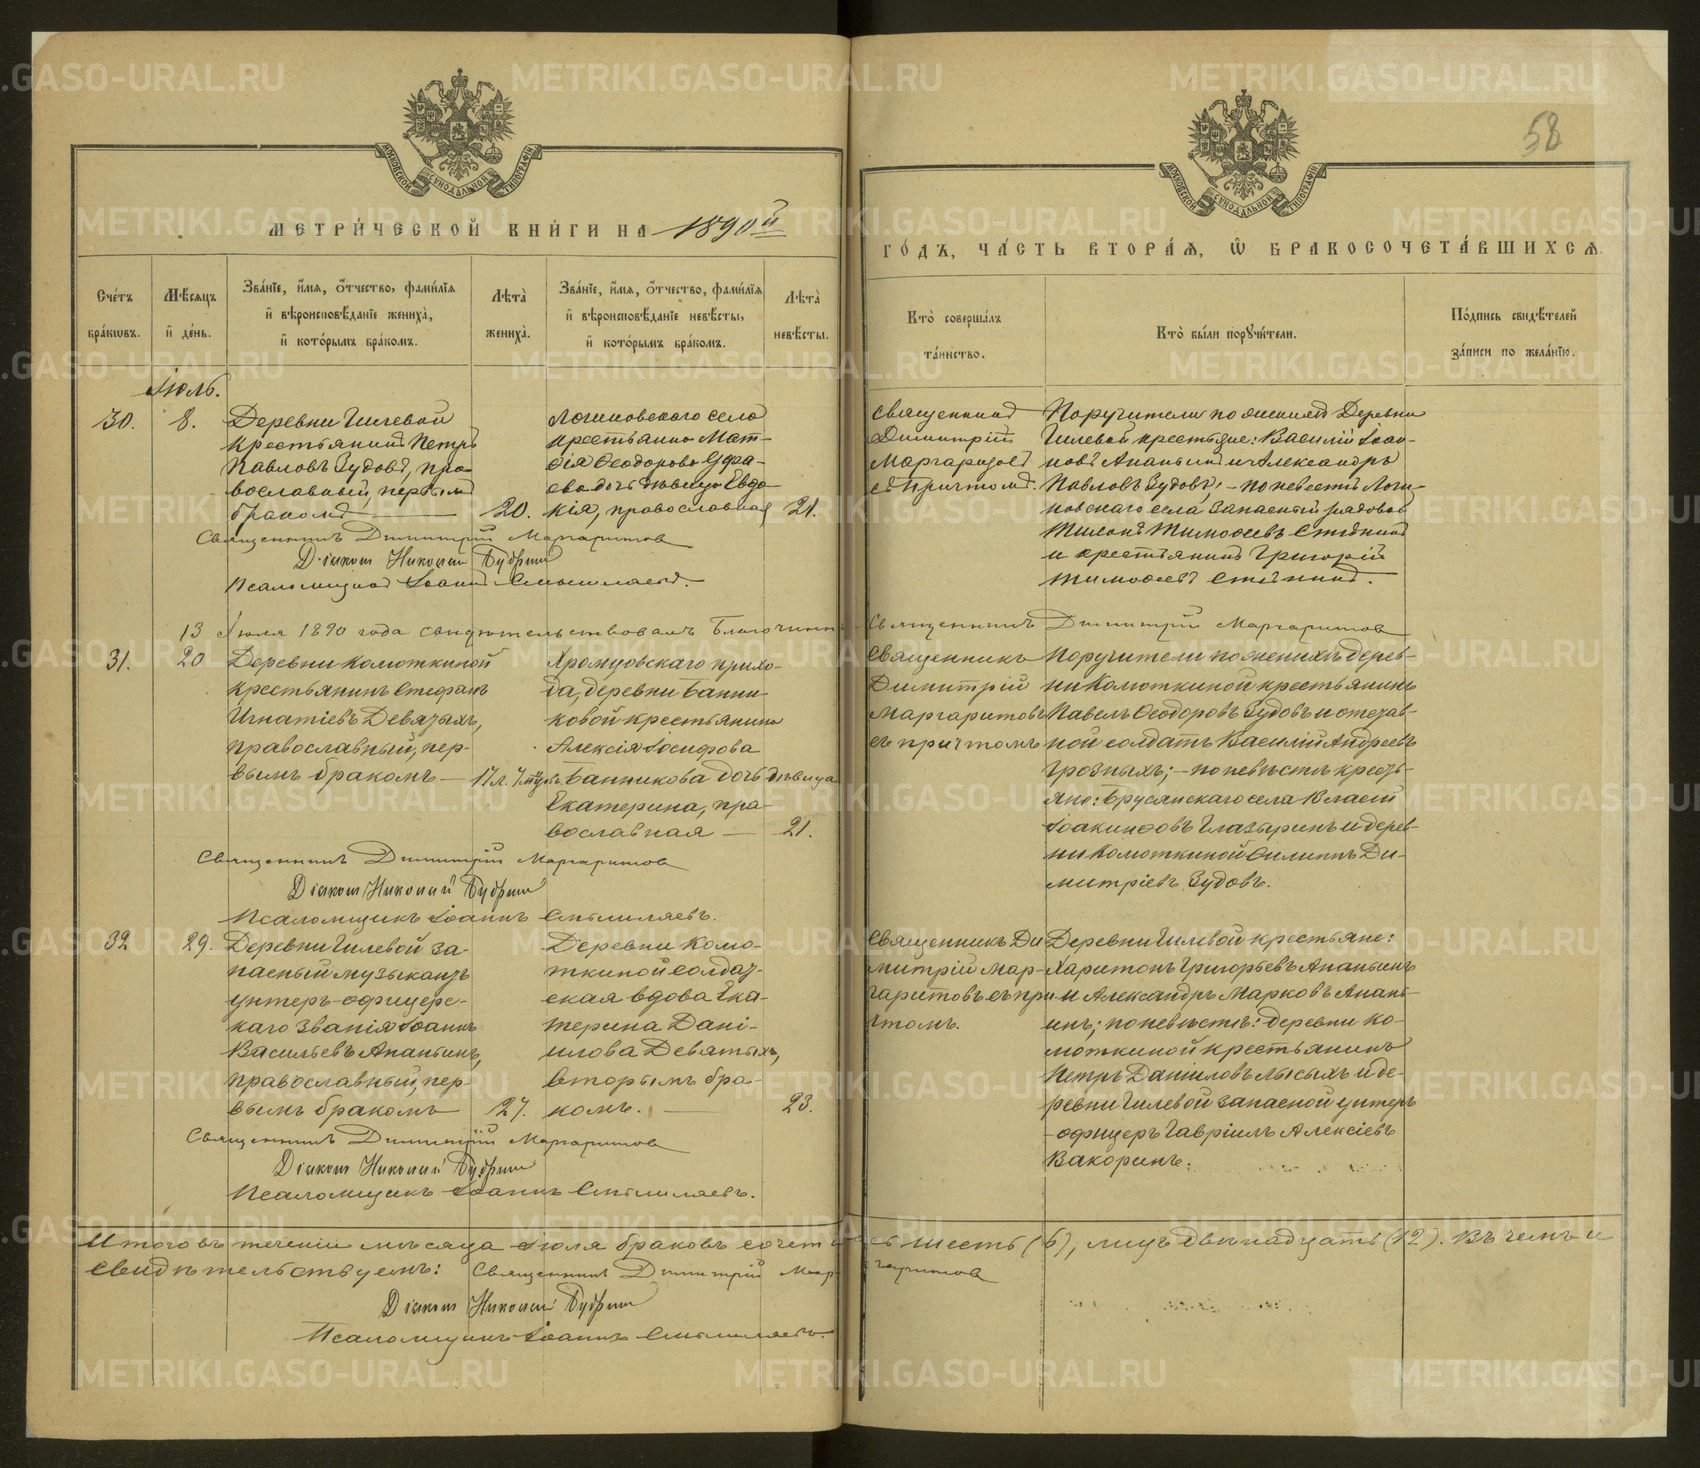 METRIKI.GASO-URAL.RU
58
МОСКОВСКОЙ СѴНОДАЛЬНОЙ ТИПОГРАФІИ
МОСКОВСКОЙ СѴНОДАЛЬНОЙ ТИПОГРАФІИ
МЕТРИ́ЧЕСКОЙ КНИ́ГИ НА 1890й
ГО́ДЪ, ЧА́СТЬ ВТОРА́Ѧ, Ѡ҆ БРАКОСОЧЕТА́ВШИХСѦ.
Сче́тъ бра́кѡвъ.
Мѣ́сѧцъ и҆ де́нь.
Зва́нїе, и҆́мѧ, ѻ҆́тчество, фами́лїѧ и҆ вѣроисповѣ́данїе жениха̀, и҆ кото́рымъ бра́комъ.
Лѣта̀ жениха̀.
Зва́нїе, и҆́мѧ, ѻ҆́тчество, фами́лїѧ и҆ вѣроисповѣ́данїе невѣ́сты, и҆ кото́рымъ бра́комъ.
Лѣта̀ невѣ́сты.
Кто̀ соверша́лъ та́инство.
Кто̀ бы́ли порꙋчи́тели.
По́дпись свидѣ́телей за́писи по жела́нїю.
Іюль.
30.
8.
Деревни Гилевой
крестьянинъ Петръ
Павловъ Зудовъ, пра-
вославный, первымъ
бракомъ
20.
Логиновскаго села
крестьянина Мат-
ѳія Ѳеодорова
дочь дѣвица Евдо-
кія, православная
21.
Священникъ
Димитрій
Маргаритовъ
съ причтомъ.
Поручители по женихѣ Деревни
Гилевой крестьяне: Василій Іоан-
новъ Ананьинъ и Александръ
Павловъ Зудовъ; - по невѣстѣ Логи-
новскаго села запасный рядовой
Тимофеевъ
и крестьянинъ Григорій
Тимофеевъ
Священникъ Димитрій Маргаритовъ
Діаконъ Николай
Псаломщикъ Іоаннъ Смышляевъ.
13 Іюля 1890 года свидѣтельствовалъ Благочинный
Священникъ Димитрій Маргаритовъ
31.
20
Деревни Комоткиной
крестьянинъ Стефанъ
Игнатіевъ Девятыхъ,
православный, пер-
вымъ бракомъ
17 л. 7 мѣс.
Хромцовскаго прихо-
да, деревни Банни-
ковой крестьянина
Алексія Іосифова
Банникова дочь дѣвица
Екатерина, пра-
вославная
21.
Священникъ
Димитрій
Маргаритовъ
съ причтомъ
Поручители по женихѣ дерев-
ни Комоткиной крестьянинъ
Павелъ Ѳеодоровъ Зудовъ и отстав-
ной солдатъ Василій Андреевъ
Грозныхъ; - по невѣстѣ кресть-
яне: Брусянскаго села Власій
Іоакимовъ Глазыринъ и дерев-
ни Комоткиной Филиппъ Ди-
митріевъ Зудовъ.
Священникъ Димитрій Маргаритовъ
Діаконъ Николай
Псаломщикъ Іоаннъ Смышляевъ.
32
29.
Деревни Гилевой за-
пасный музыкантъ
унтеръ-офицерс-
каго званія Іоаннъ
Васильевъ Ананьинъ,
православный, пер-
вымъ бракомъ
27.
Деревни Комо-
ткиной солдат-
ская вдова Ека-
терина Дані-
илова Девятыхъ,
вторымъ бра-
комъ.
23.
Священникъ Ди-
митрій Мар-
гаритовъ съ при-
чтомъ.
Деревни Гилевой крестьяне:
Харитонъ Григорьевъ Ананьинъ
и Александръ Марковъ Анань-
инъ; по невѣстѣ: деревни Ко-
моткиной крестьянинъ
Петръ Даниловъ Лысыхъ и де-
ревни Гилевой запасной унтеръ
-офицеръ Гавріилъ Алексіевъ
Вакоринъ.
Священникъ Димитрій Маргаритовъ
Діаконъ Николай
Псаломщикъ Іоаннъ Смышляевъ.
Итого въ теченіи мѣсяца Іюля браковъ сочеталось шесть (6), лицъ двѣнадцать (12). Въ чемъ и
свидѣтельствуемъ: Священникъ Димитрій Маргаритовъ
Діаконъ Николай
Псаломщикъ Іоаннъ Смышляевъ.